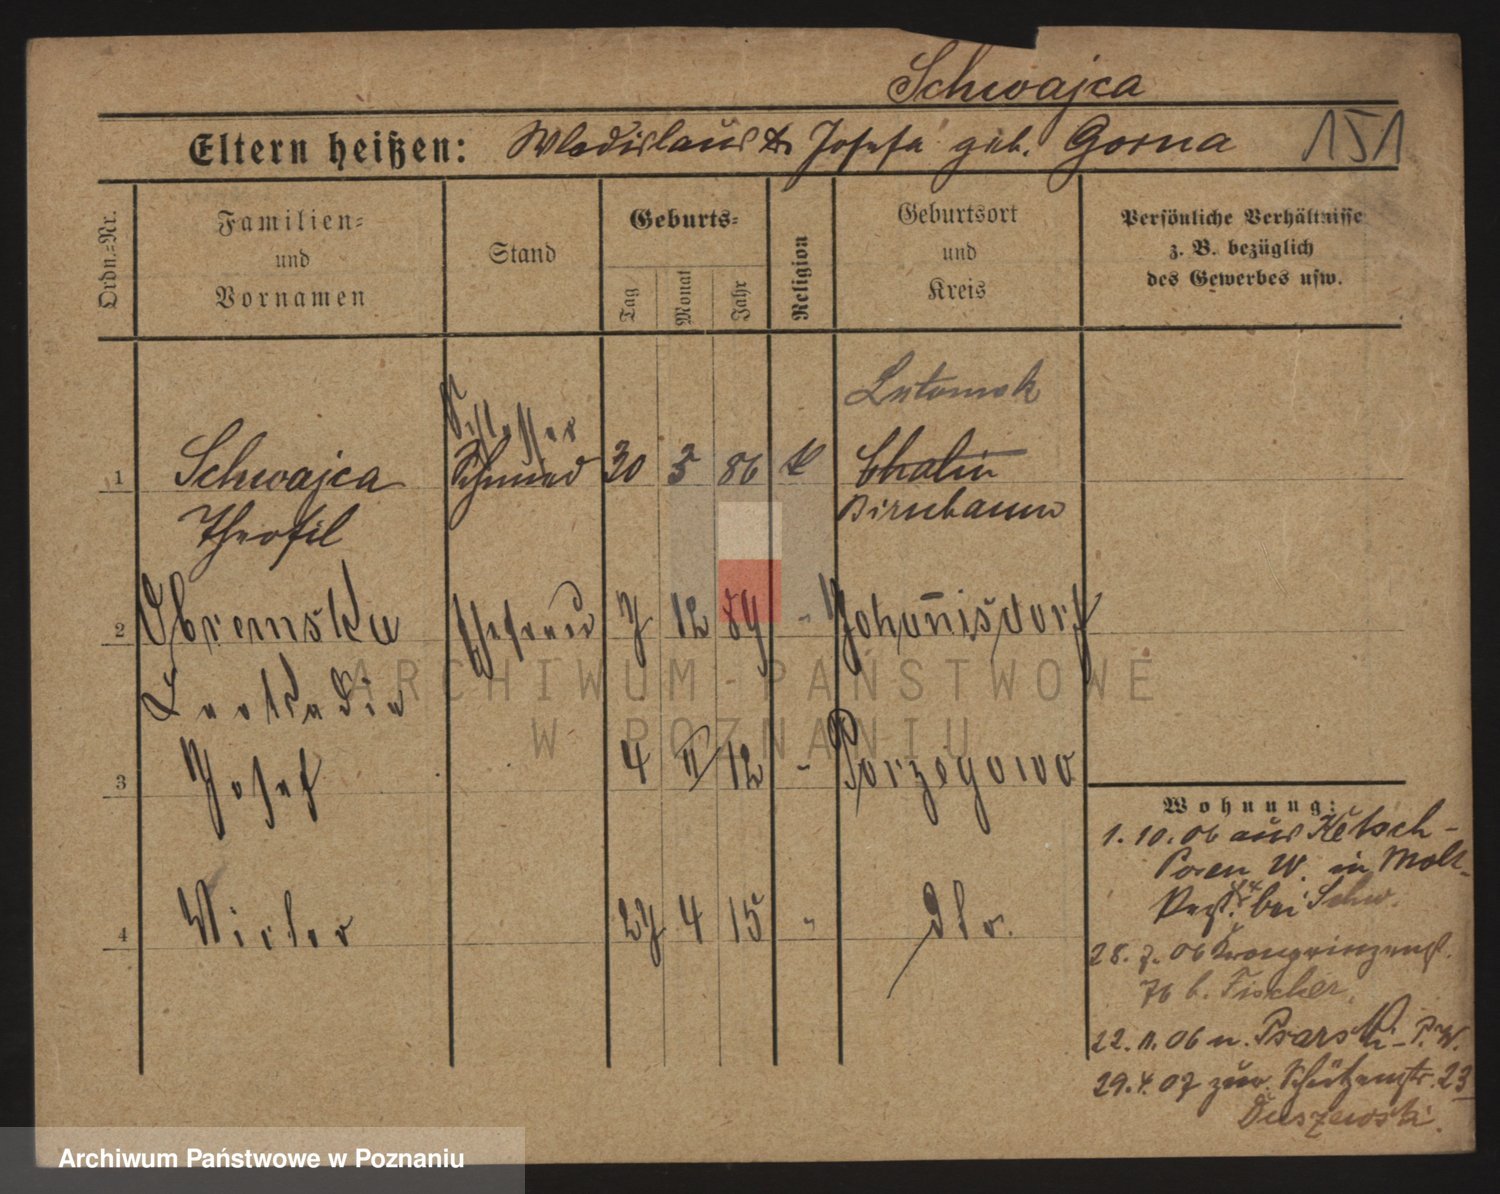 Schwajca
Eltern heißen: Wladislaus & Josefa geb. Gorna 151
Ordn.=Nr.
Familien=
und
Vornamen
Stand
Geburts=
Tag
Monat
Jahr
Religion
Geburtsort
und
Kreis
Persönliche Verhältnisse
z. B. bezüglich
des Gewerbes usw.
Lutomek
Schlosser
1 Schwajca Schmied 30 3 86 k Chalin
Theofil Birnbaum
2 Obremska Ehefrau 7 12 89 - Johannisdorf
Leokadia
3 Josef 4 II 12 - Porzegowo
4 27 4 15 "
Wohnung:
1. 10. 06 aus Ketsch-
Posen W. in Molt-
bei Schw.
28. 7. 06 Kronprinzenst.
76 b. Fischer.
22. 11. 06 n. Psarski - P. W.
29. 4. 07 zur. Schützenstr. 23
Duszewski.
ARCHIWUM PAŃSTWOWE
W POZNANIU
Archiwum Państwowe w Poznaniu